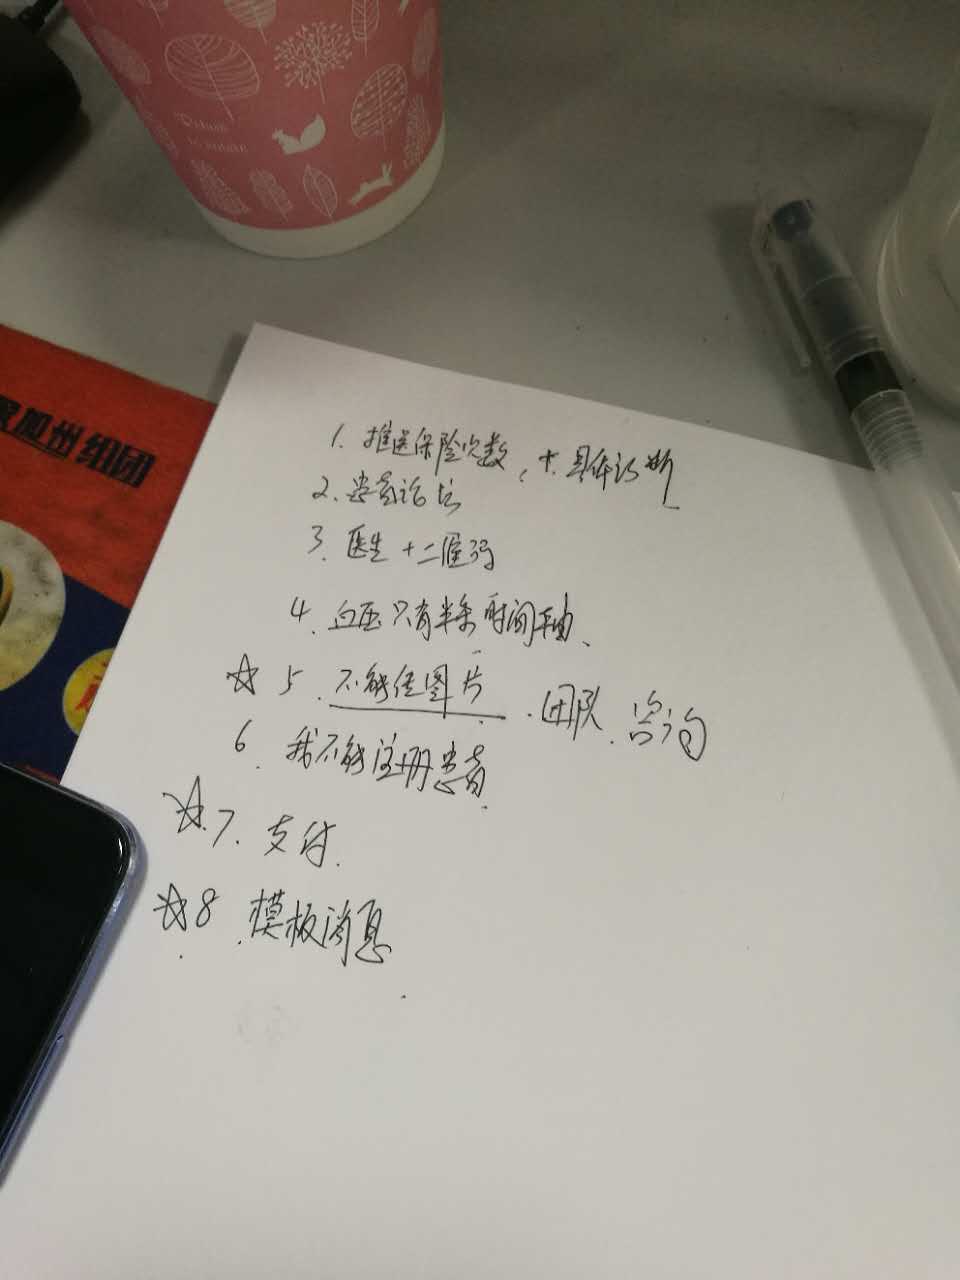 加州组团
1. 推送保险次数, 十. 具体诊断
2. 患者论坛
3. 医生 + 二维码
4. 血压只有半条时间轴、
☆ 5. 不能传图片. 团队. 咨询
6. 我不能注册患者.
☆ 7. 支付.
☆ 8. 模板消息.